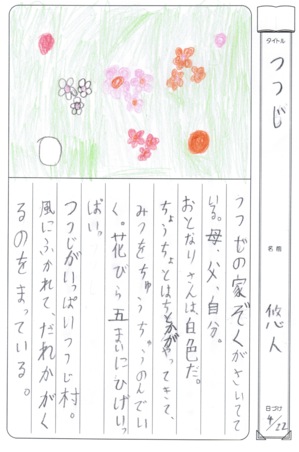 タイトル
つつじ
名前
悠人
日づけ
4/22
つつじの家ぞくがさいてて
いる。母、父、自分。
おとなりさんは、白色だ。
ちょうちょとはちがやってきて、
みつをちゅうちゅうのんでい
く。花びら五まいにひげいっ
ぱい。
つつじがいっぱいつつじ村。
風にふかれて、だれかがく
るのをまっている。